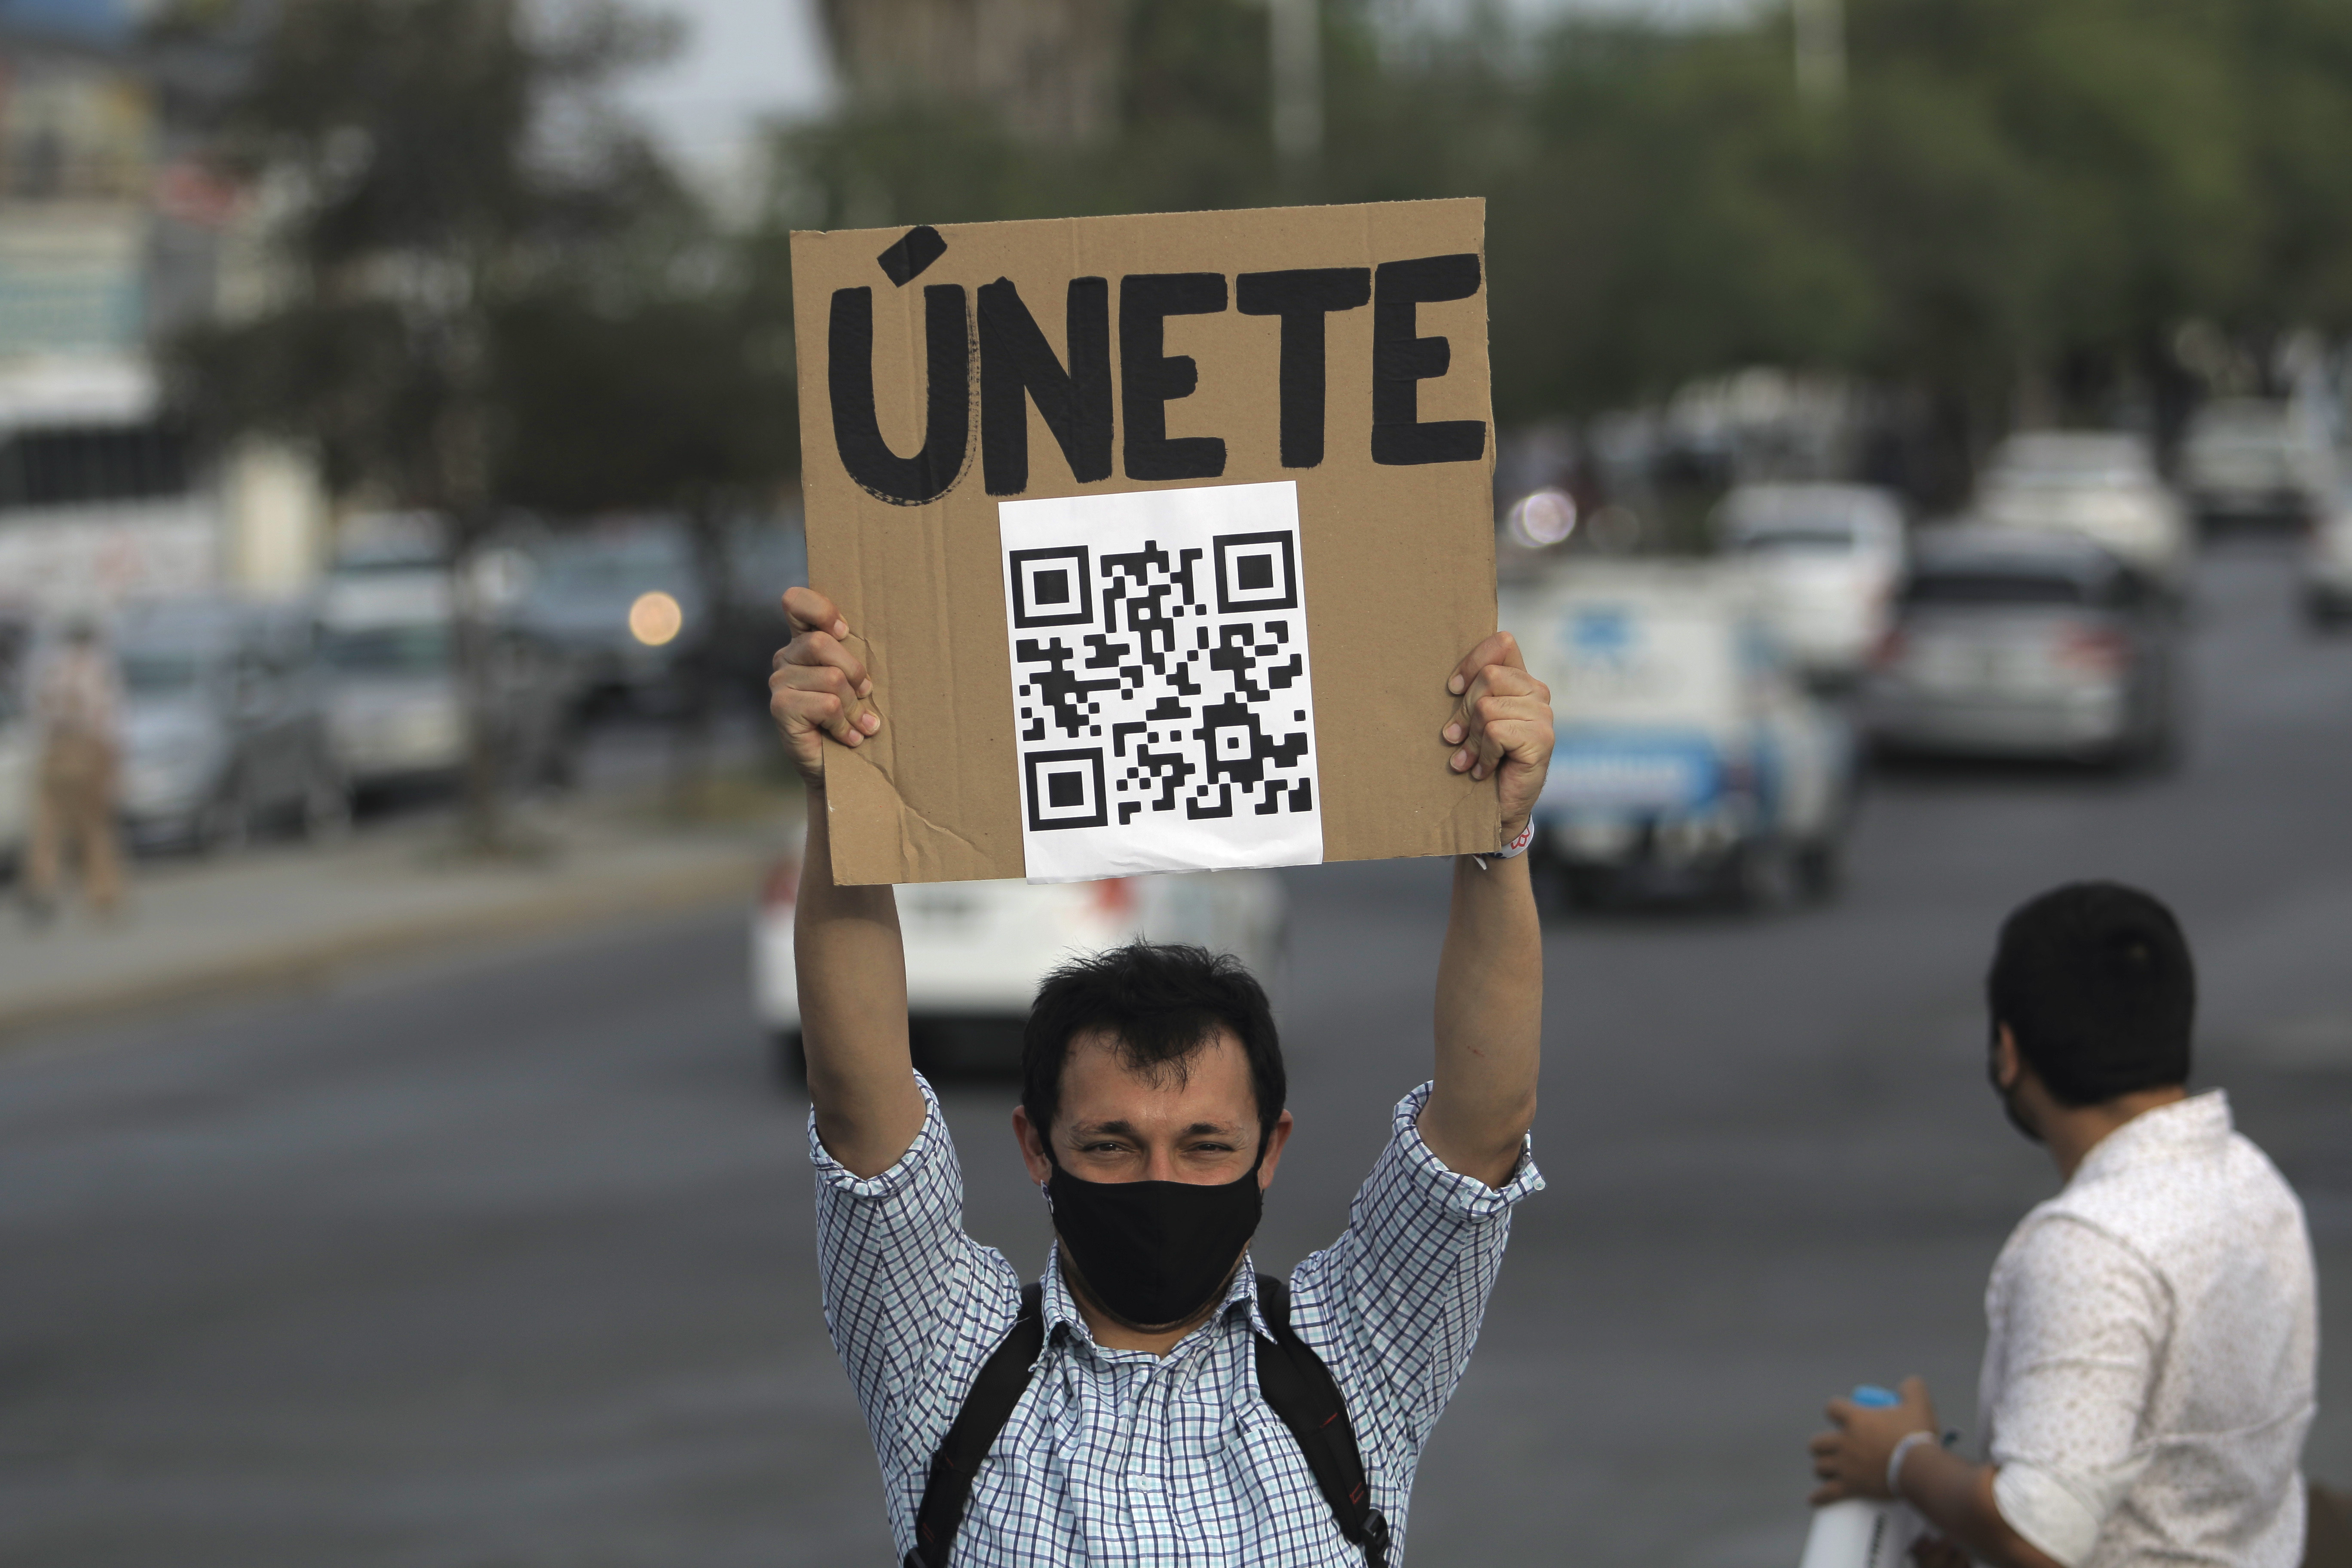 ÚNETE